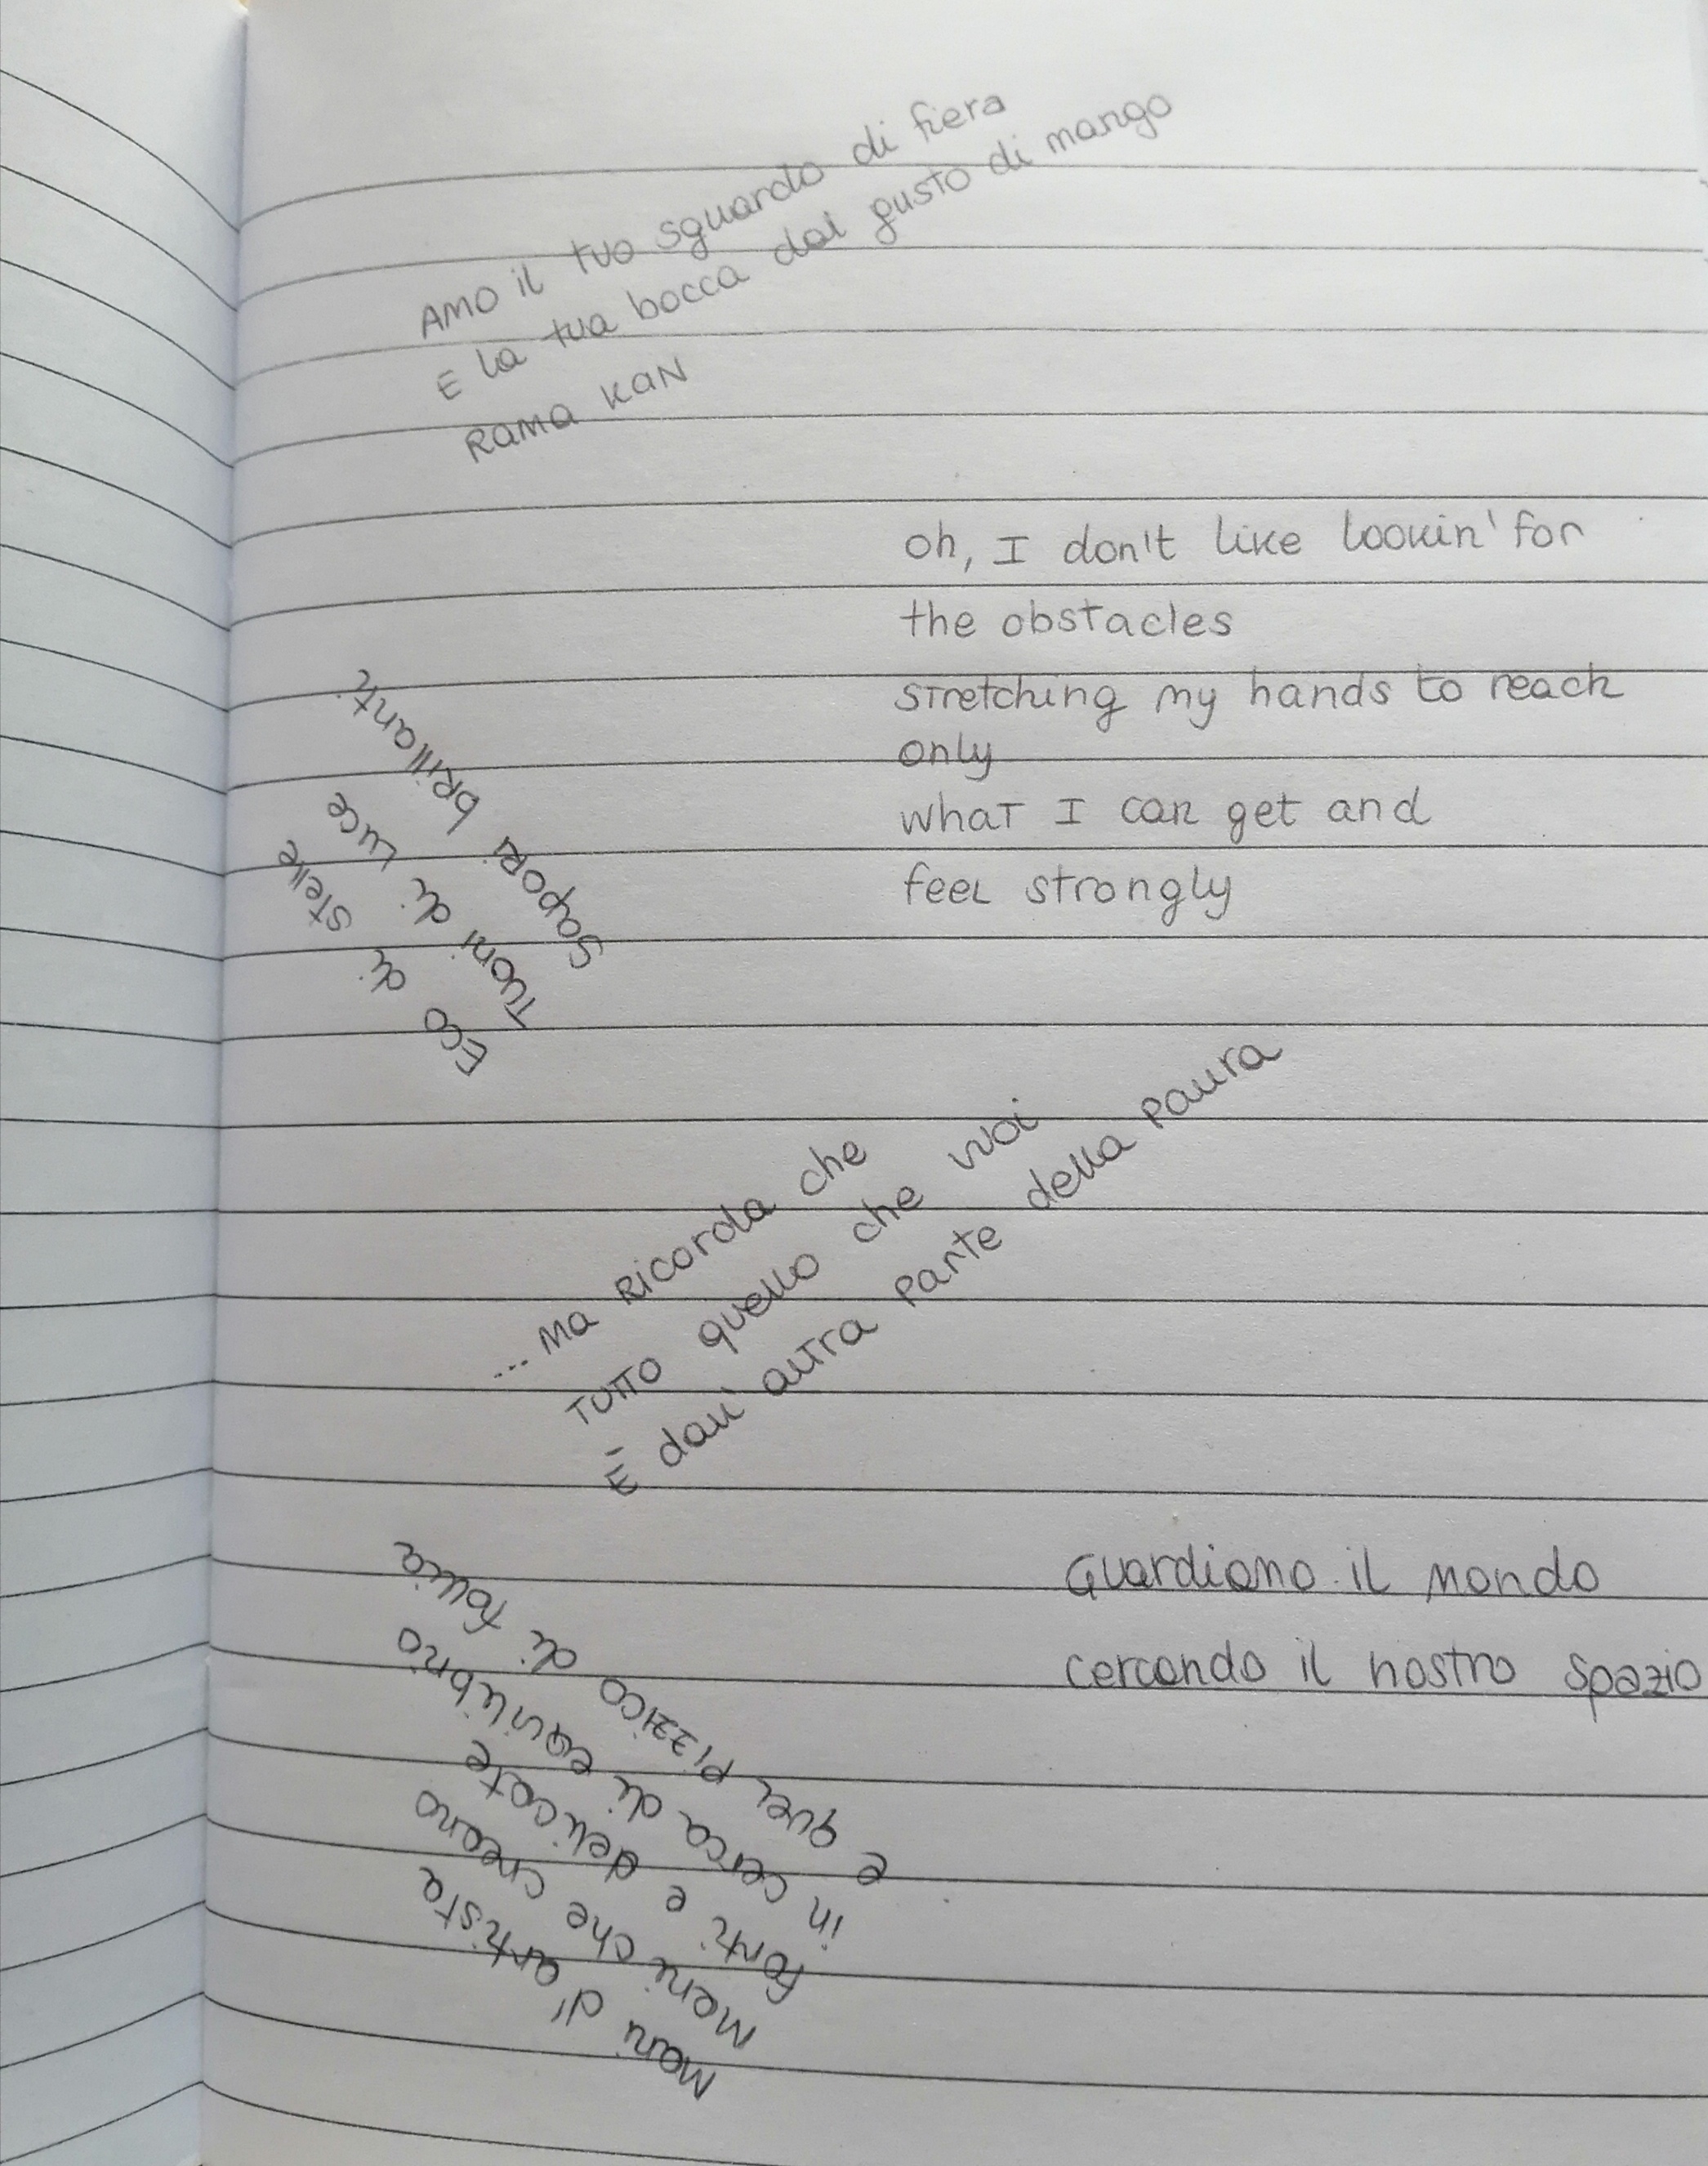 AMO il tuo sguardo di fiera
E la tua bocca dal gusto di mango
RAMA KAN
oh, I don't like lookin' for
the obstacles
stretching my hands to reach
only
what I can get and
feel strongly
Eco di stelle
Tuoni di luce
Sapori brillanti
... Ma Ricorda che
Tutto quello che vuoi
È dall' altra parte della paura
Guardiamo il mondo
cercando il nostro spazio
Mani d'artista
Mani che creano
forti e delicate
in cerca di equilibrio
e quel pizzico di follia